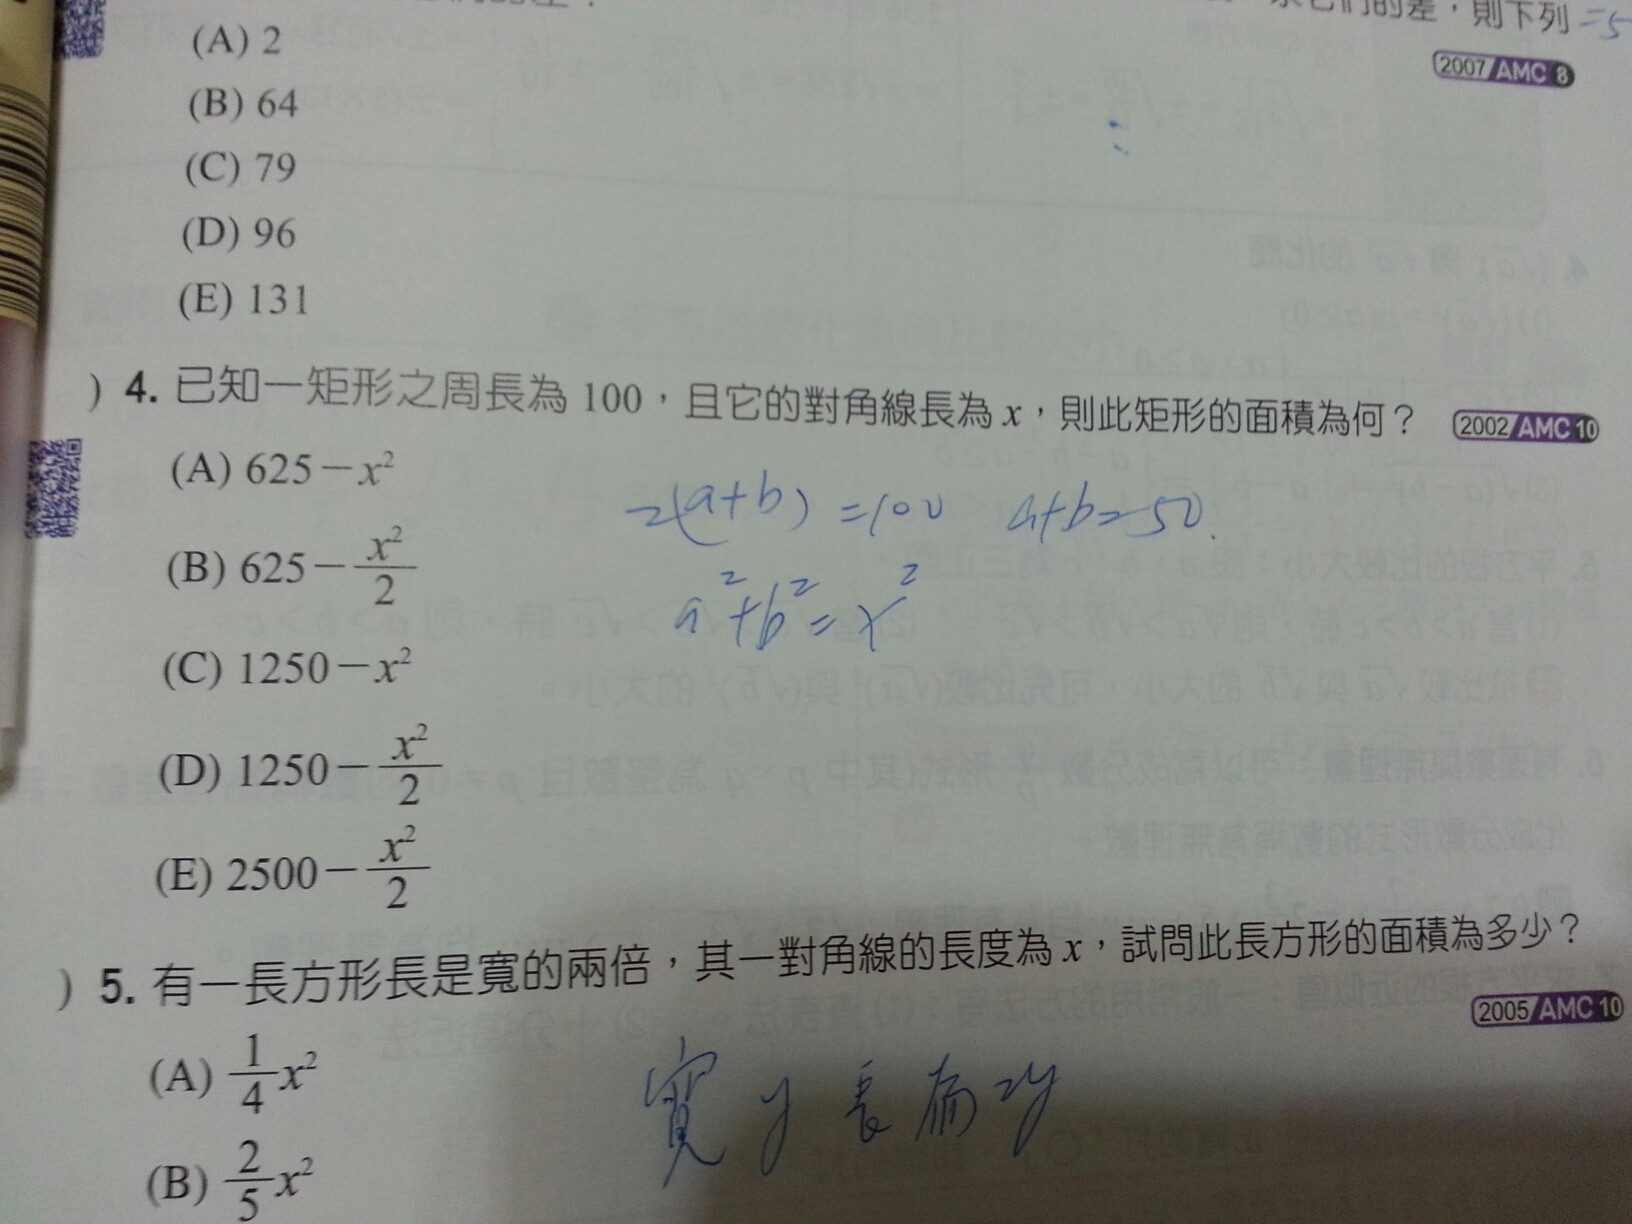 求它們的差，則下列 =5
2007 AMC 8
(A) 2
(B) 64
(C) 79
(D) 96
(E) 131
) 4. 已知一矩形之周長為 100，且它的對角線長為 x，則此矩形的面積為何？ 2002 AMC 10
(A) 625－x²
2(a+b) =100 a+b=50.
(B) 625－x²/2
a²+b²=x²
(C) 1250－x²
(D) 1250－x²/2
(E) 2500－x²/2
) 5. 有一長方形長是寬的兩倍，其一對角線的長度為 x，試問此長方形的面積為多少？
2005 AMC 10
(A) 1/4 x²
寬 y 長為 2y
(B) 2/5 x²